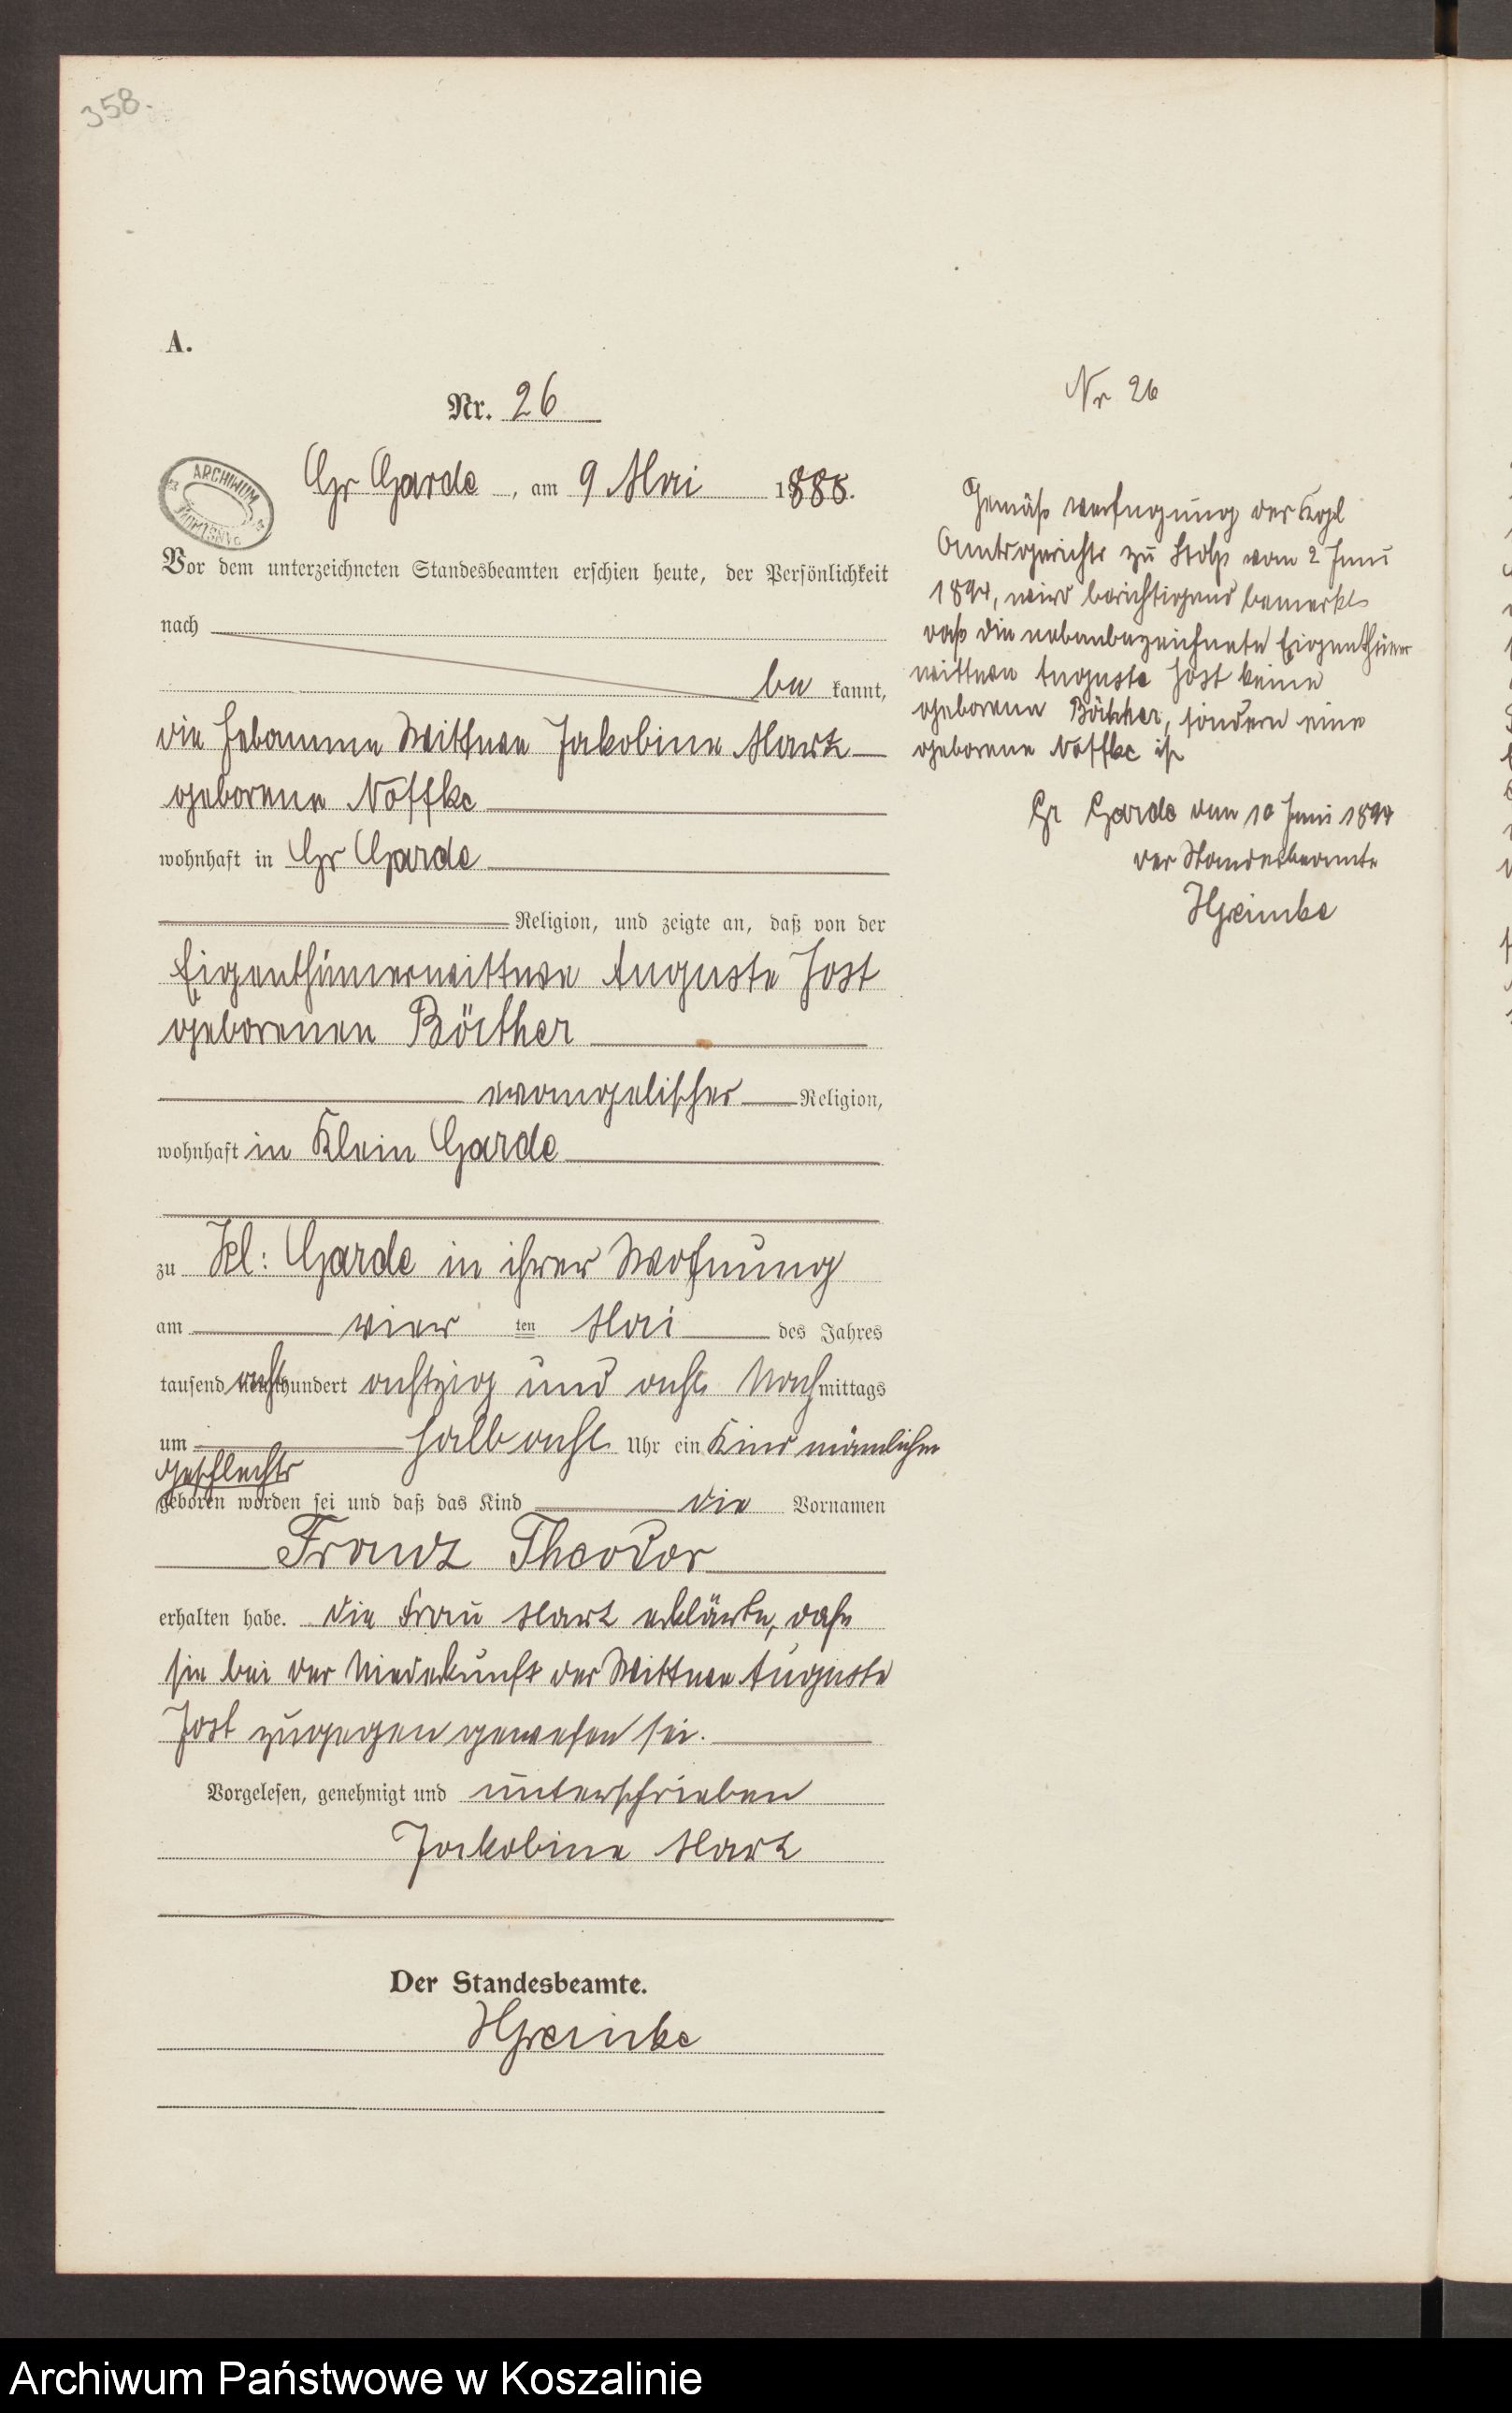 358.
A.
Nr. 26
ARCHIWUM
Gr Garde, am 9 Mai 1888.
Vor dem unterzeichneten Standesbeamten erschien heute, der Persönlichkeit
nach
be kannt,
die Hebamme Wittwe Jakobine Marz
geborene Noffke
wohnhaft in Gr Garde
Religion, und zeigte an, daß von der
Eigenthümerwittwe Auguste Jost
geborenen Böttcher
evangelischer Religion,
wohnhaft in Klein Garde
zu Kl: Garde in ihrer Wohnung
am vier ten Mai des Jahres
tausend acht hundert achtzig und acht Nachmittags
um halb acht Uhr ein Kind männlichen
Geschlechts
geboren worden sei und daß das Kind die Vornamen
Franz Theodor
erhalten habe. Die Frau Marz erklärte, daß
sie bei der Niederkunft der Wittwe Auguste
Jost zugegen gewesen sei.
Vorgelesen, genehmigt und unterschrieben
Jackobine Marz
Der Standesbeamte.
HGreinke
Nr 26
Gemäß Verfügung der Kgl
Amtsgerichts zu Stolp vom 2 Juni
1894, wird berichtigend bemerkt
daß die nebenbezeichnete Eigenthümer
wittwe Auguste Jost keine
geborene Böttcher, sondern eine
geborene Noffke ist
Gr Garde den 10 Juni 1894
der Standesbeamte
HGreinke
Archiwum Państwowe w Koszalinie